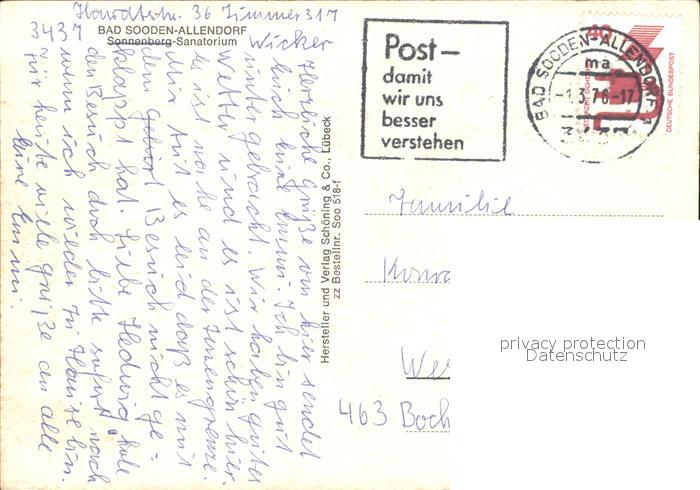 Hardtstr. 36 Zimmer 317
3437
BAD SOODEN-ALLENDORF
Sonnenberg-Sanatorium
Wicker
Herzliche Grüße von hier sendet
Euch Eure Emmi. Ich bin gut
untergebracht. Wir haben gutes
Wetter und es ist schön hier.
Es ist nahe an der Zonengrenze.
Mir tut es leid daß es mit
dem Geburt Besuch nicht ge-
klappt hat. Liebe Hedwig hole
den Besuch doch bitte sofort nach
wenn ich wieder zu Hause bin.
Für heute viele Grüße an alle
Eure Emmi
Hersteller und Verlag Schöning & Co., Lübeck
zz Bestellnr. Soo 518-f
Post –
damit
wir uns
besser
verstehen
BAD SOODEN-ALLENDORF 1
ma
-1.3.76-17
3437
40
DEUTSCHE BUNDESPOST
Familie
Konra
We
463 Boch
privacy protection
Datenschutz